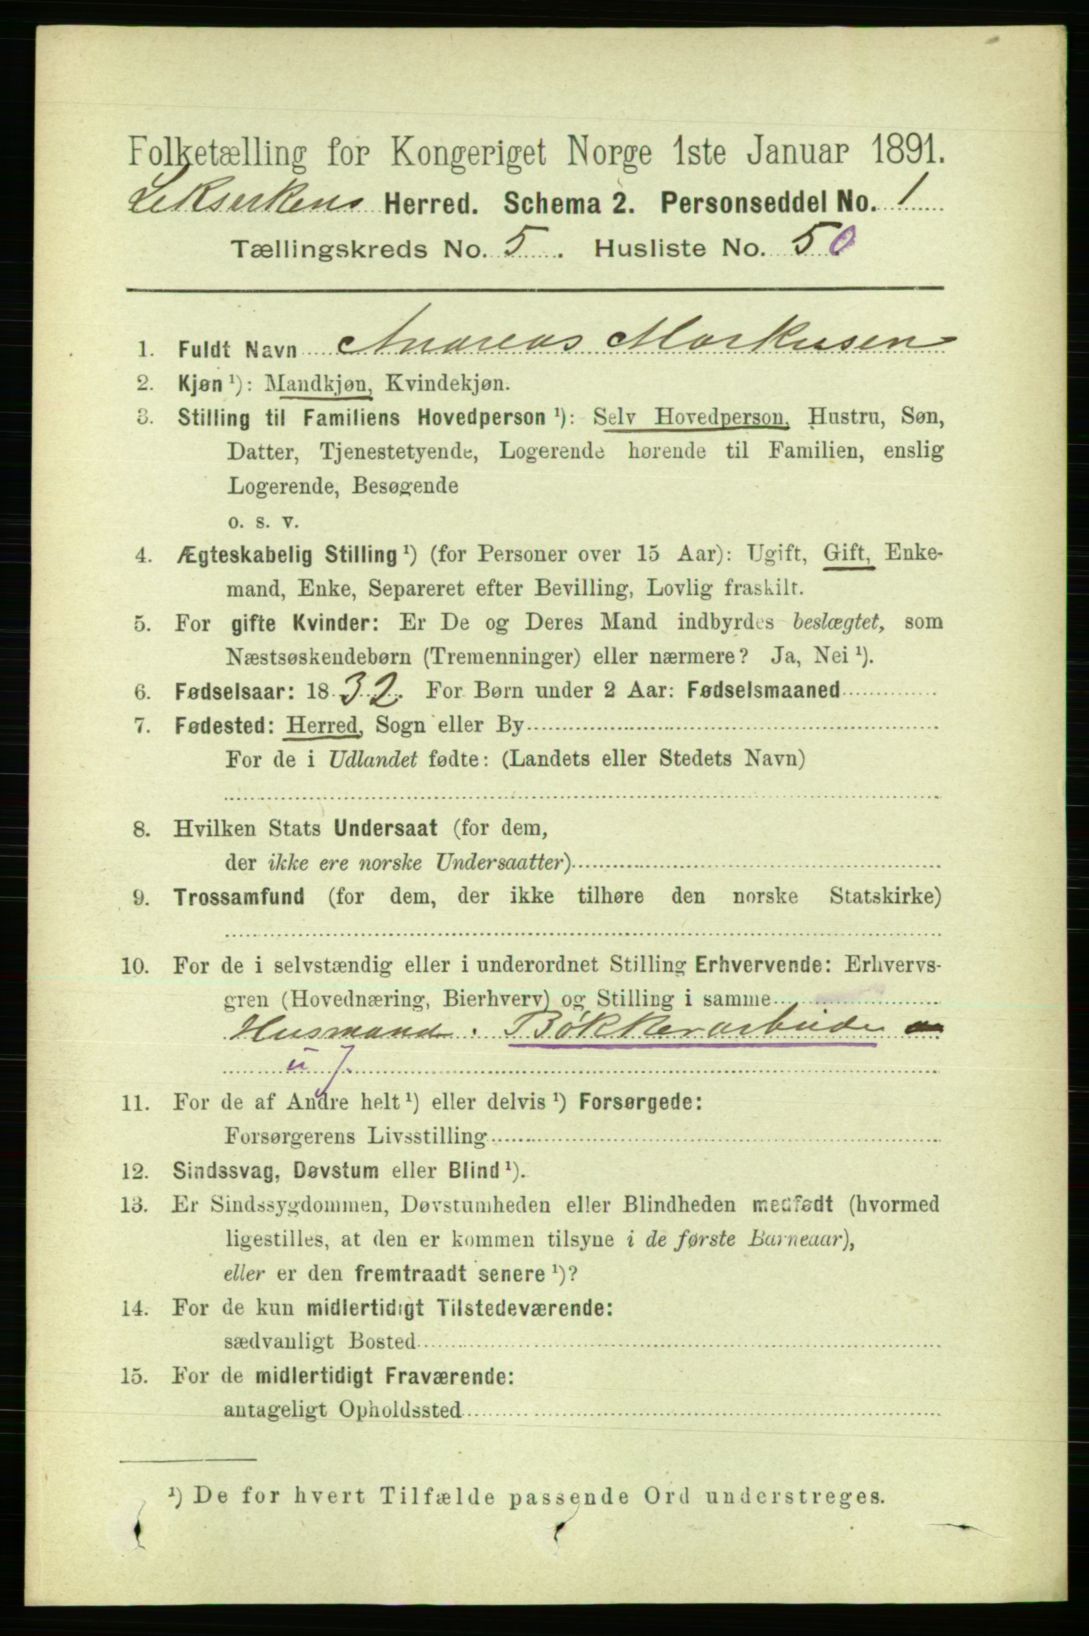 Folketælling for Kongeriget Norge 1ste Januar 1891.
Leksvikens Herred. Schema 2. Personseddel No. 1
Tællingskreds No. 5. Husliste No. 50
1. Fuldt Navn Andreas Markusen
2. Kjøn ¹): Mandkjøn, Kvindekjøn.
3. Stilling til Familiens Hovedperson ¹): Selv Hovedperson, Hustru, Søn,
Datter, Tjenestetyende, Logerende hørende til Familien, enslig
Logerende, Besøgende
o. s. v.
4. Ægteskabelig Stilling ¹) (for Personer over 15 Aar): Ugift, Gift, Enke-
mand, Enke, Separeret efter Bevilling, Lovlig fraskilt.
5. For gifte Kvinder: Er De og Deres Mand indbyrdes beslægtet, som
Næstsøskendebørn (Tremenninger) eller nærmere? Ja, Nei ¹).
6. Fødselsaar: 1832. For Børn under 2 Aar: Fødselsmaaned
7. Fødested: Herred, Sogn eller By
For de i Udlandet fødte: (Landets eller Stedets Navn)
8. Hvilken Stats Undersaat (for dem,
der ikke ere norske Undersaatter)
9. Trossamfund (for dem, der ikke tilhøre den norske Statskirke)
10. For de i selvstændig eller i underordnet Stilling Erhvervende: Erhvervs-
gren (Hovednæring, Bierhverv) og Stilling i samme
Husmand. Bøkkerarbeide
u J.
11. For de af Andre helt ¹) eller delvis ¹) Forsørgede:
Forsørgerens Livsstilling
12. Sindssvag, Døvstum eller Blind ¹).
13. Er Sindssygdommen, Døvstumheden eller Blindheden medfødt (hvormed
ligestilles, at den er kommen tilsyne i de første Barneaar),
eller er den fremtraadt senere ¹)?
14. For de kun midlertidigt Tilstedeværende:
sædvanligt Bosted
15. For de midlertidigt Fraværende:
antageligt Opholdssted
¹) De for hvert Tilfælde passende Ord understreges.